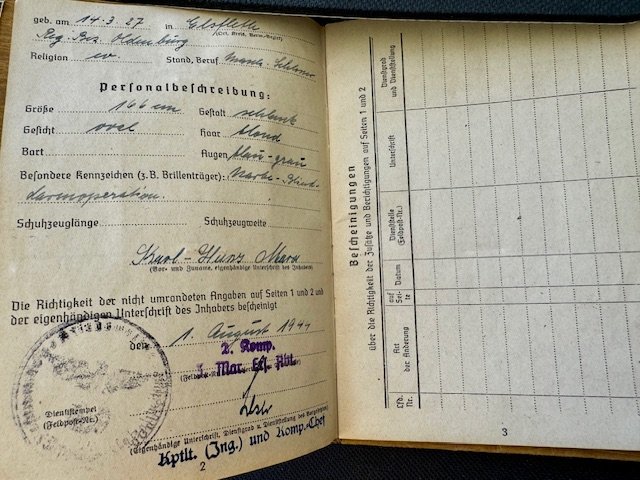 geb. am 14.3.27 in Elsfleth
(Ort, Kreis, Verw.-Bezirk)
Reg. Bez. Oldenburg
Religion ev. Stand, Beruf Masch. Schlosser
Personalbeschreibung:
Größe 166 cm Gestalt schlank
Gesicht oval Haar blond
Bart Augen blau-grau
Besondere Kennzeichen (z. B. Brillenträger): Narbe - Blind-
darmoperation.
Schuhzeuglänge Schuhzeugweite
Karl-Heinz
(Vor- und Zuname, eigenhändige Unterschrift des Inhabers)
Die Richtigkeit der nicht umrandeten Angaben auf Seiten 1 und 2 und
der eigenhändigen Unterschrift des Inhabers bescheinigt
den 1. August 1944
2. Komp.
3. Mar. Ers. Abt.
Dienststempel
(Feldpost-Nr.)
(Eigenhändige Unterschrift, Dienstgrad u. Dienststellung des Vorgesetzten)
Kptlt. (Ing.) und Komp.-Chef
2
Bescheinigungen
über die Richtigkeit der Zusätze und Berichtigungen auf Seiten 1 und 2
Lfd. Nr.
Art der Änderung
auf Seite
Datum
Dienststelle (Feldpost-Nr.)
Unterschrift
Dienstgrad und Dienststellung
3